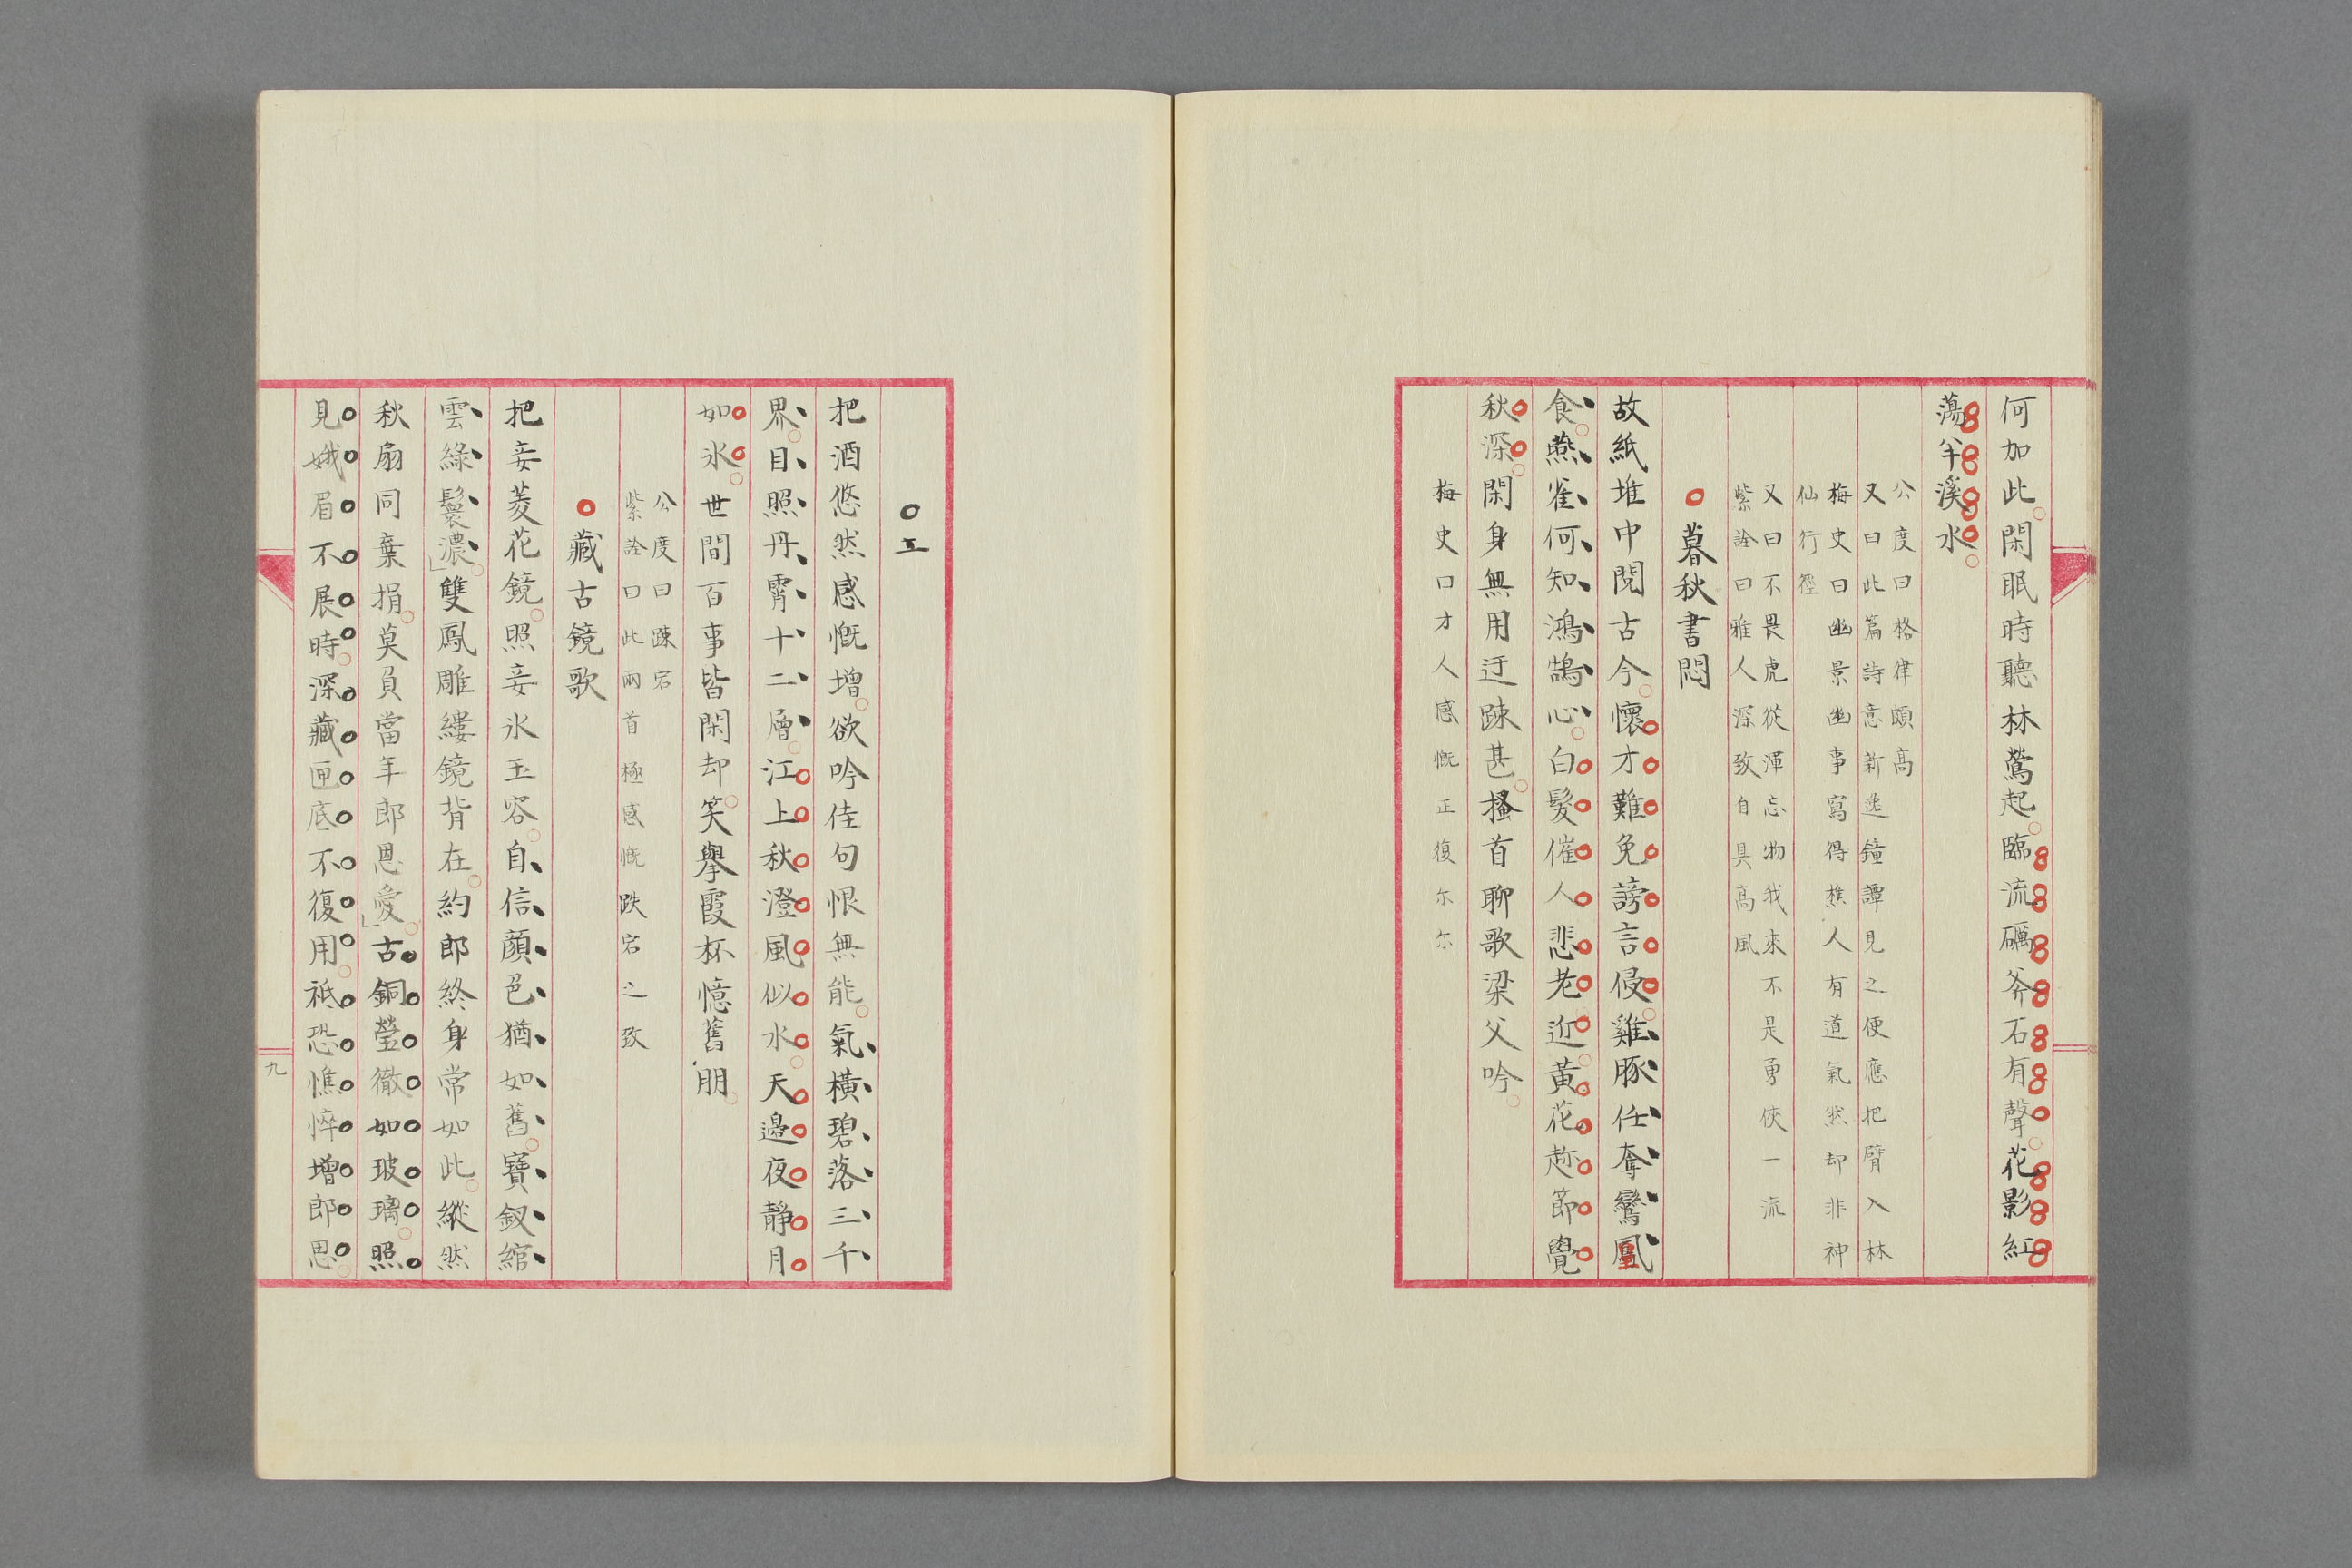 何加此閑眠時聽林鶯起臨流礪斧石有聲花影紅
蕩半溪水
公度曰格律頗高
又曰此篇詩意新逸鐘譚見之便應把臂入林
梅史曰幽景幽事寫得樵人有道氣然却非神
仙行徑
又曰不畏虎從渾忘物我來不是勇俠一流
紫詮曰雅人深致自具高風
暮秋書悶
故紙堆中閱古今懷才難免謗言侵雞豚任奪鸞鳳
食燕雀何知鴻鵠心白髮催人悲老近黃花趂節覺
秋深閑身無用迂踈甚搔首聊歌梁父吟
梅史曰才人感慨正復尒尒
二
把酒悠然感慨增欲吟佳句恨無能氣橫碧落三千
界目照丹霄十二層江上秋澄風似水天邊夜靜月
如氷世間百事皆閑却笑擧霞杯憶舊朋
公度曰踈宕
紫詮曰此兩首極感慨跌宕之致
藏古鏡歌
把妾菱花鏡照妾氷玉容自信顏色猶如舊寶釵綰
雲綠鬟濃雙鳳雕縷鏡背在約郎終身常如此縱然
秋扇同棄捐莫負當年郎恩愛古銅瑩徹如玻璃照
見娥眉不展時深藏匣底不復用祗恐憔悴增郎思
九